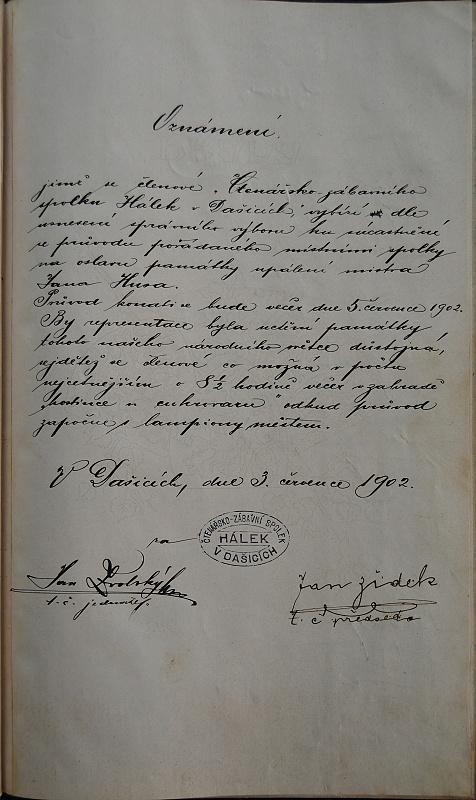 Oznámení.
jímž se členové „Čtenářsko-zábavního
spolku Hálek v Dašicích" vybízí dle
usnesení správního výboru ku súčastnění
se průvodu pořádaného místními spolky
na oslavu památky upálení mistra
Jana Husa.
Průvod konati se bude večer dne 5. července 1902.
By representace byla uctění památky
tohoto našeho národního věštce důstojná,
sejdětež se členové co možná v počtu
nejčetnějším o 8½ hodině večer v zahradě
„hostince u cukrovaru" odkud průvod
započne s lampiony městem.
V Dašicích, dne 3. července 1902.
za
ČTENÁŘSKO-ZÁBAVNÍ SPOLEK
HÁLEK
V DAŠICÍCH
Jan
t. č. jednatel.
Jan Žídek
t. č. předseda